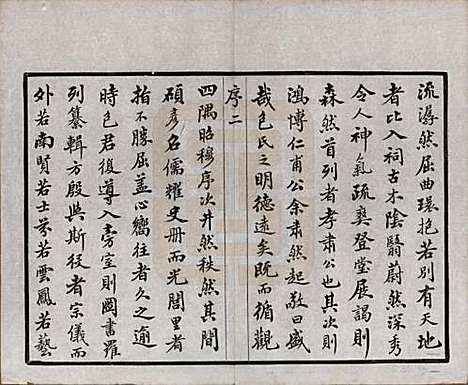 流潺然屈曲環抱若別有天地
者比入祠古木陰翳蔚然深秀
令人神氣疏爽登堂展謁則
森然首列者孝肅公也其次則
鴻博仁甫公余肅然起敬曰盛
哉包氏之明德遠矣既而循觀
序二
四隅昭穆序次井然秩然其間
碩彥名儒耀史冊而光閭里者
指不勝屈蓋心嚮往者久之逾
時包君復導入旁室則圖書羅
列纂輯方殷與斯役者宗儀而
外若南賢若士芬若雲鳳若藝